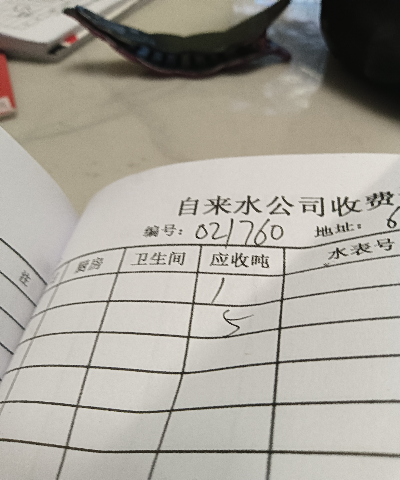 自来水公司收费
编号: 021760 地址: 6
厨房 卫生间 应收吨 水表号
1
5